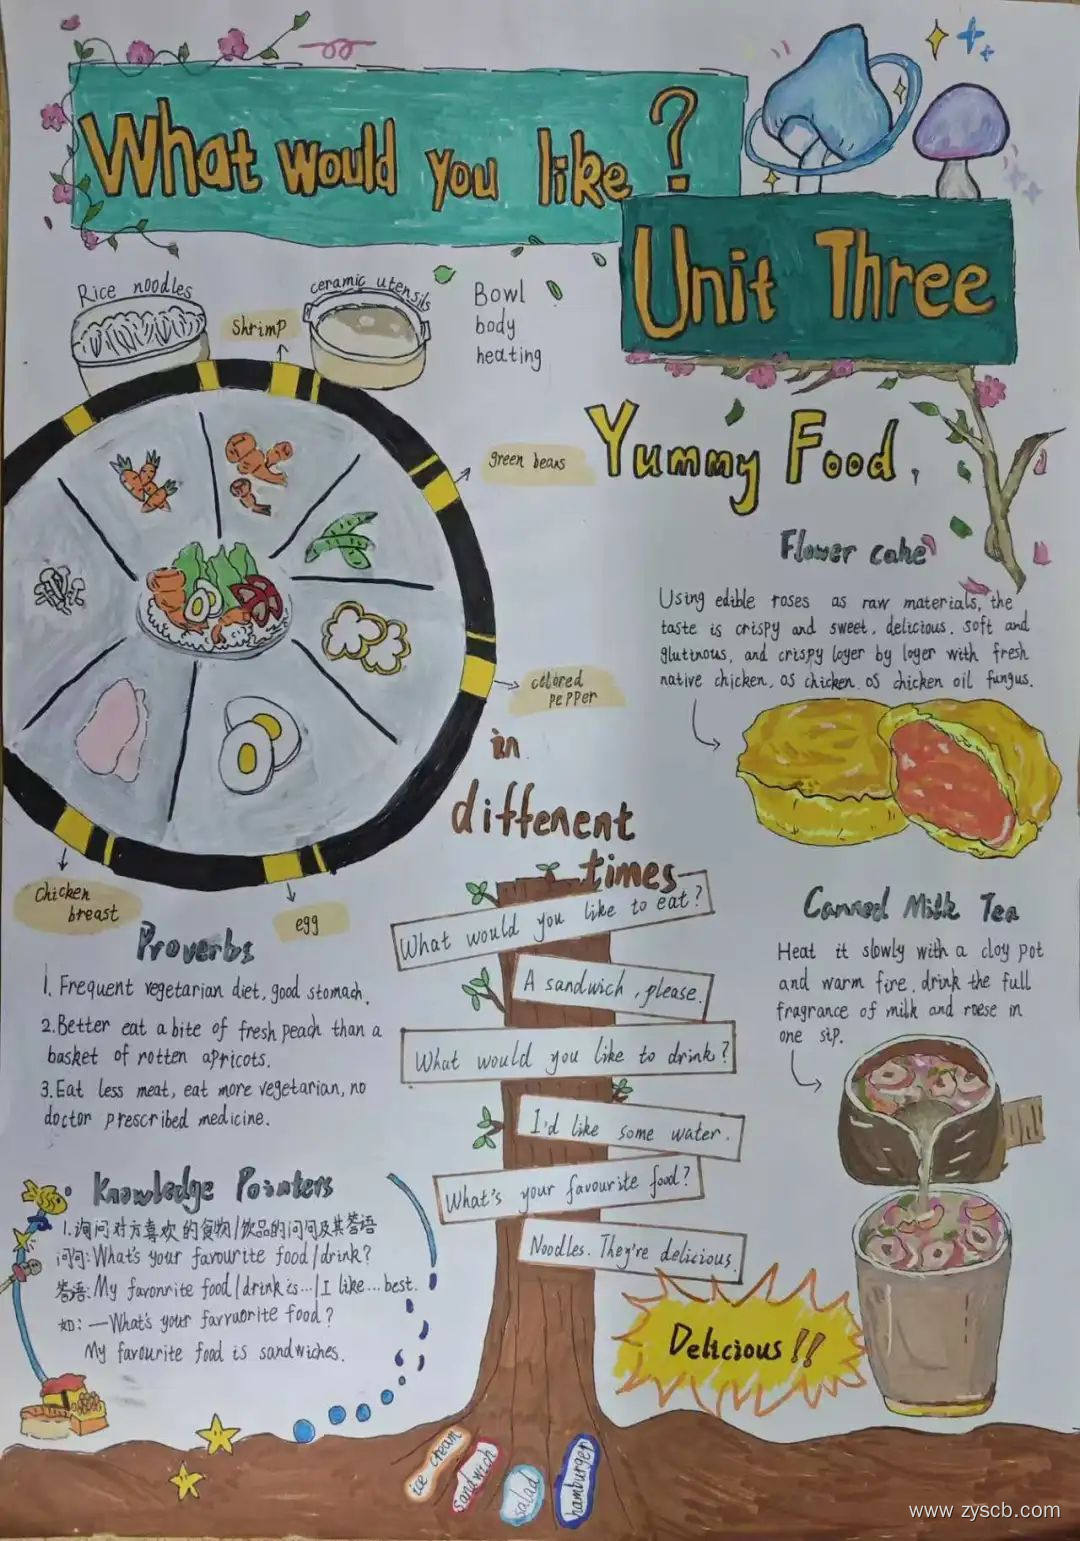 What would you like ?
Unit Three
Rice noodles
ceramic utensils
Shrimp
Bowl
body
heating
green beans
Yummy Food,
Flower cake
Using edible roses as raw materials, the
taste is crispy and sweet, delicious. soft and
glutinous, and crispy loyer by loyer with fresh
native chicken, os chicken os chicken oil fungus.
colored
pepper
in
different
times
Chicken
breast
egg
Proverbs
1. Frequent vegetarian diet, good stomach.
2.Better eat a bite of fresh peach than a
basket of rotten apricots.
3.Eat less meat, eat more vegetarian, no
doctor prescribed medicine.
What would you like to eat?
A sandwich, please.
What would you like to drink?
I'd like some water.
What's your favourite food?
Noodles. They're delicious.
Canned Milk Tea
Heat it slowly with a cloy pot
and warm fire, drink the full
fragrance of milk and roese in
one sip.
Knowledge Pointers
1.询问对方喜欢的食物/饮品的问句及其答语
问句:What's your favourite food/drink?
答语:My favonrite food/drink is.../I like...best.
如: —What's your farvuorite food?
My favourite food is sandwiches.
Delicious!!
ice cream
sandwich
salad
hamburger
www.zyscb.com